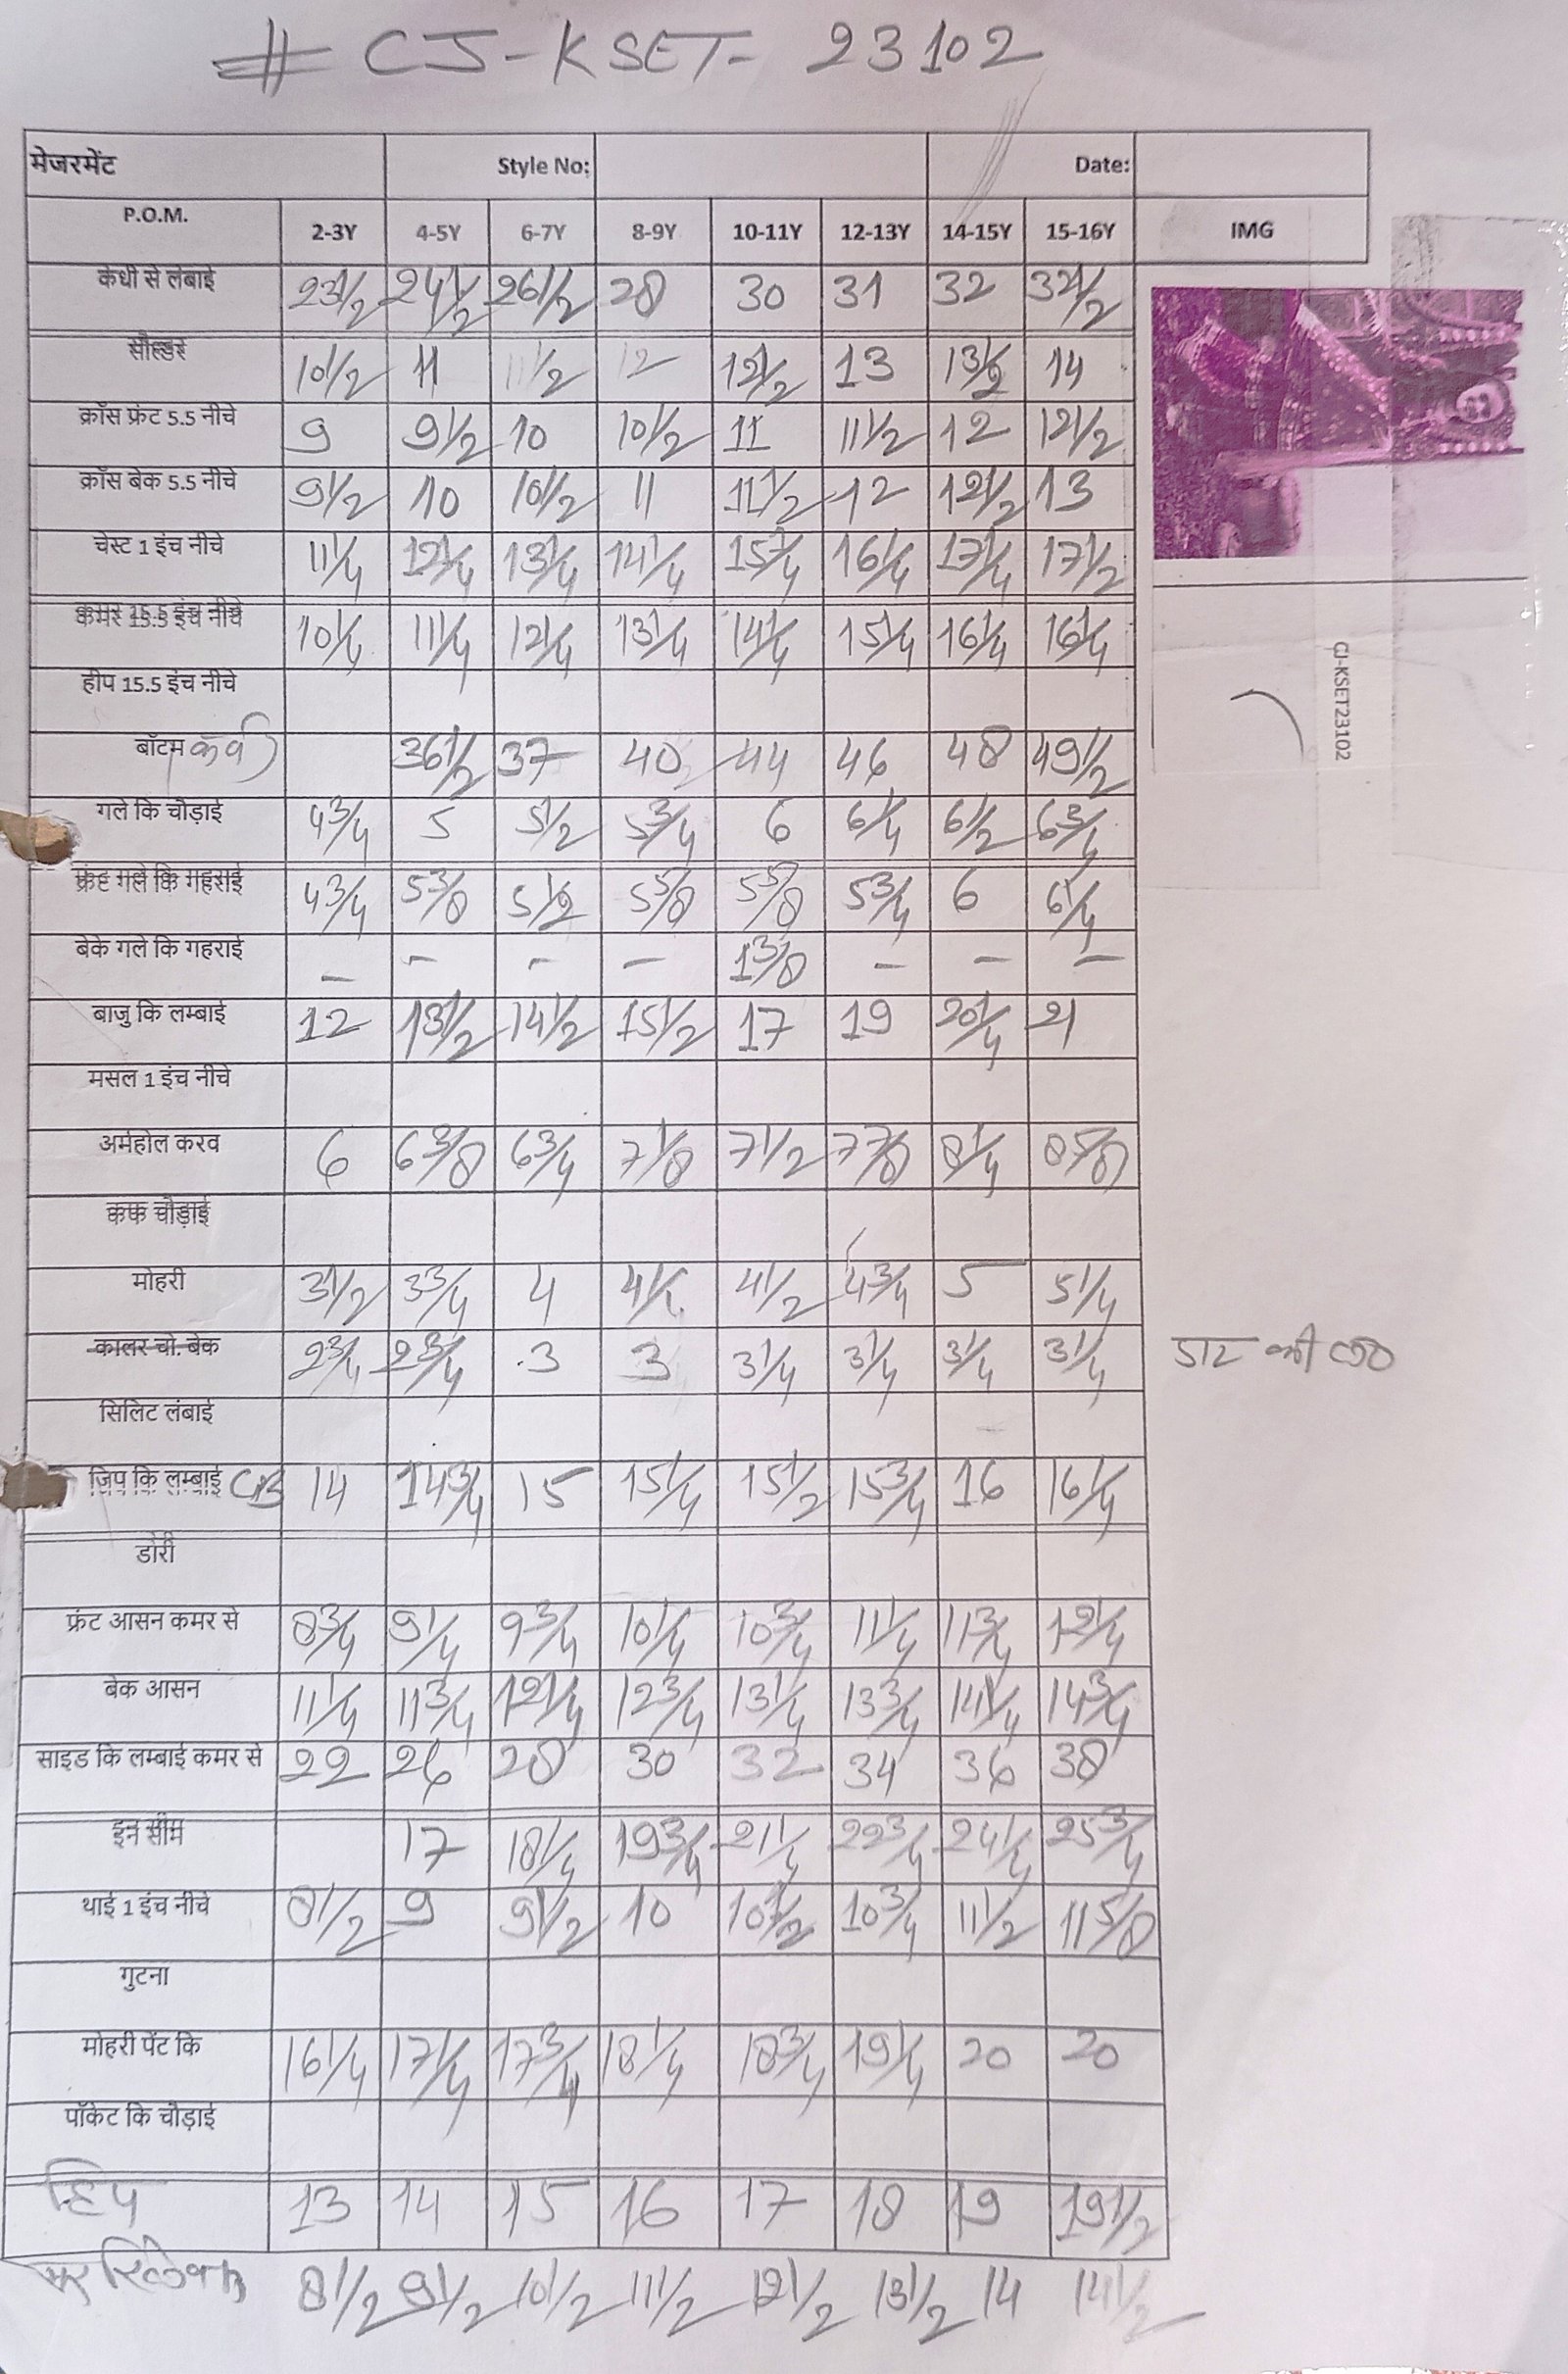 # CJ-KSET- 23102
मेजरमेंट Style No: Date:
P.O.M. 2-3Y 4-5Y 6-7Y 8-9Y 10-11Y 12-13Y 14-15Y 15-16Y IMG
केधी से लंबाई 23 1/2 24 1/2 26 1/2 28 30 31 32 32 1/2
सौल्डर 10 1/2 11 11 1/2 12 12 1/2 13 13 1/2 14
क्रॉस फ्रंट 5.5 नीचे 9 9 1/2 10 10 1/2 11 11 1/2 12 12 1/2
क्रॉस बेक 5.5 नीचे 9 1/2 10 10 1/2 11 11 1/2 12 12 1/2 13
चेस्ट 1 इंच नीचे 11 1/4 12 1/4 13 1/4 14 1/4 15 1/4 16 1/4 17 1/4 17 1/2
कमर 15.5 इंच नीचे 10 1/4 11 1/4 12 1/4 13 1/4 14 1/4 15 1/4 16 1/4 16 1/4
हीप 15.5 इंच नीचे
बॉटम 36 1/2 37 40 44 46 48 49 1/2
गले कि चौड़ाई 4 3/4 5 5 1/2 5 3/4 6 6 1/4 6 1/2 6 3/4
फ्रंट गले कि गहराई 4 3/4 5 3/8 5 1/2 5 5/8 5 5/8 5 3/4 6 6 1/4
बेके गले कि गहराई - - - - 1 3/8 - - -
बाजु कि लम्बाई 12 13 1/2 14 1/2 15 1/2 17 19 20 1/4 21
मसल 1 इंच नीचे
अर्महोल करव 6 6 3/8 6 3/4 7 1/8 7 1/2 7 7/8 8 1/4 8 5/8
कफ चौड़ाई
मोहरी 3 1/2 3 3/4 4 4 1/2 4 3/4 5 5 1/4
कालर चो. बेक 2 3/4 2 3/4 3 3 3 1/4 3 1/4 3 1/4 3 1/4
सिलिट लंबाई
जिप कि लम्बाई 14 14 3/4 15 15 1/4 15 1/2 15 3/4 16 16 1/4
डोरी
फ्रंट आसन कमर से 8 3/4 9 1/4 9 3/4 10 1/4 10 3/4 11 1/4 11 3/4 12 1/4
बेक आसन 11 1/4 11 3/4 12 1/4 12 3/4 13 1/4 13 3/4 14 1/4 14 3/4
साइड कि लम्बाई कमर से 22 26 28 30 32 34 36 38
इन सीम 17 18 1/4 19 3/4 21 1/4 22 3/4 24 1/4 25 3/4
थाई 1 इंच नीचे 8 1/2 9 9 1/2 10 10 1/2 10 3/4 11 1/2 11 5/8
गुटना
मोहरी पेंट कि 16 1/4 17 1/4 17 3/4 18 1/4 18 3/4 19 1/4 20 20
पॉकेट कि चौड़ाई
हिप 13 14 15 16 17 18 19 19 1/2
8 1/2 9 1/2 10 1/2 11 1/2 12 1/2 13 1/2 14 14 1/2
CJ-KSET23102